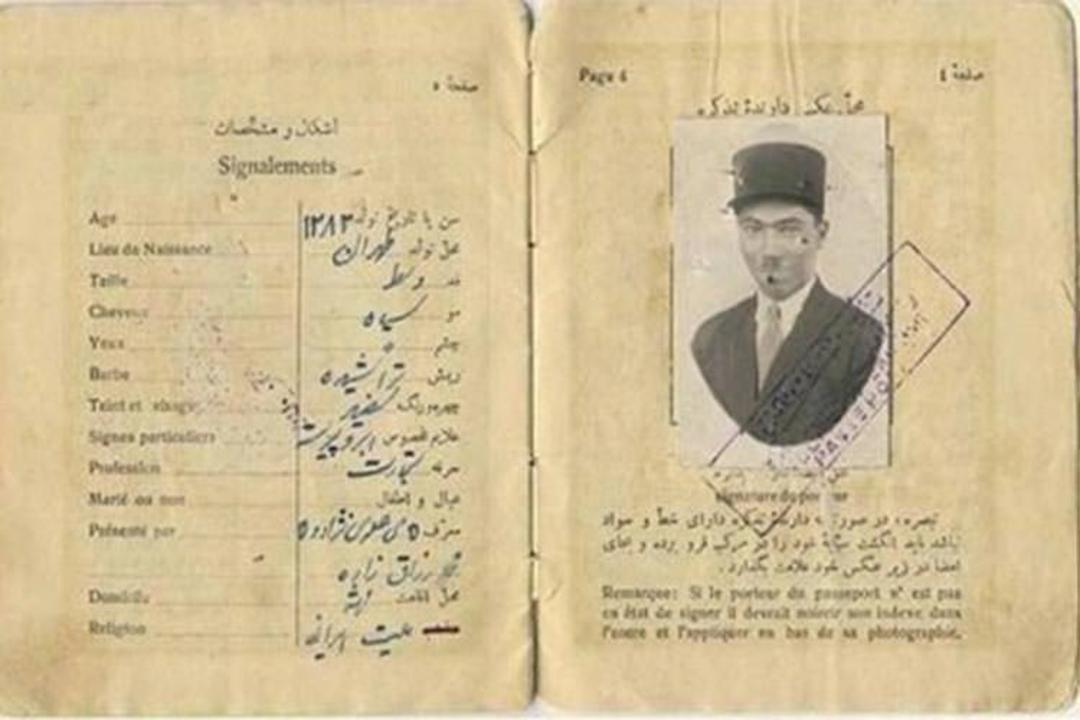 صفحهٔ ٥
اشکال و مشخصات
Signalements
Age سن یا تاریخ تولد ۱۲۸۳
Lieu de Naissance محل تولد طهران
Taille قد وسط
Cheveux مو سیاه
Yeux چشم
Barbe ریش تراشیده
Teint et visage چهره و رنگ سفید
Signes particuliers علائم مخصوص
Profession حرفه تجارت
Marié ou non عیال و اطفال
Présenté par معرف
Domicile محل اقامت
Religion ملیت ایرانی
Page 4 صفحهٔ ٤
محل عکس دارندهٔ تذکره
PASSEPORT
signature du porteur
تبصره، در صورتیکه دارندهٔ تذکره دارای خط و سواد
نباشد باید انگشت سبابهٔ خود را در مرکب فرو برده و بجای
امضا در زیر عکس خود علامت بگذارد.
Remarque: Si le porteur du passeport n' est pas
en état de signer il devrait noircir son indexe dans
l'encre et l'appliquer en bas de sa photographie.